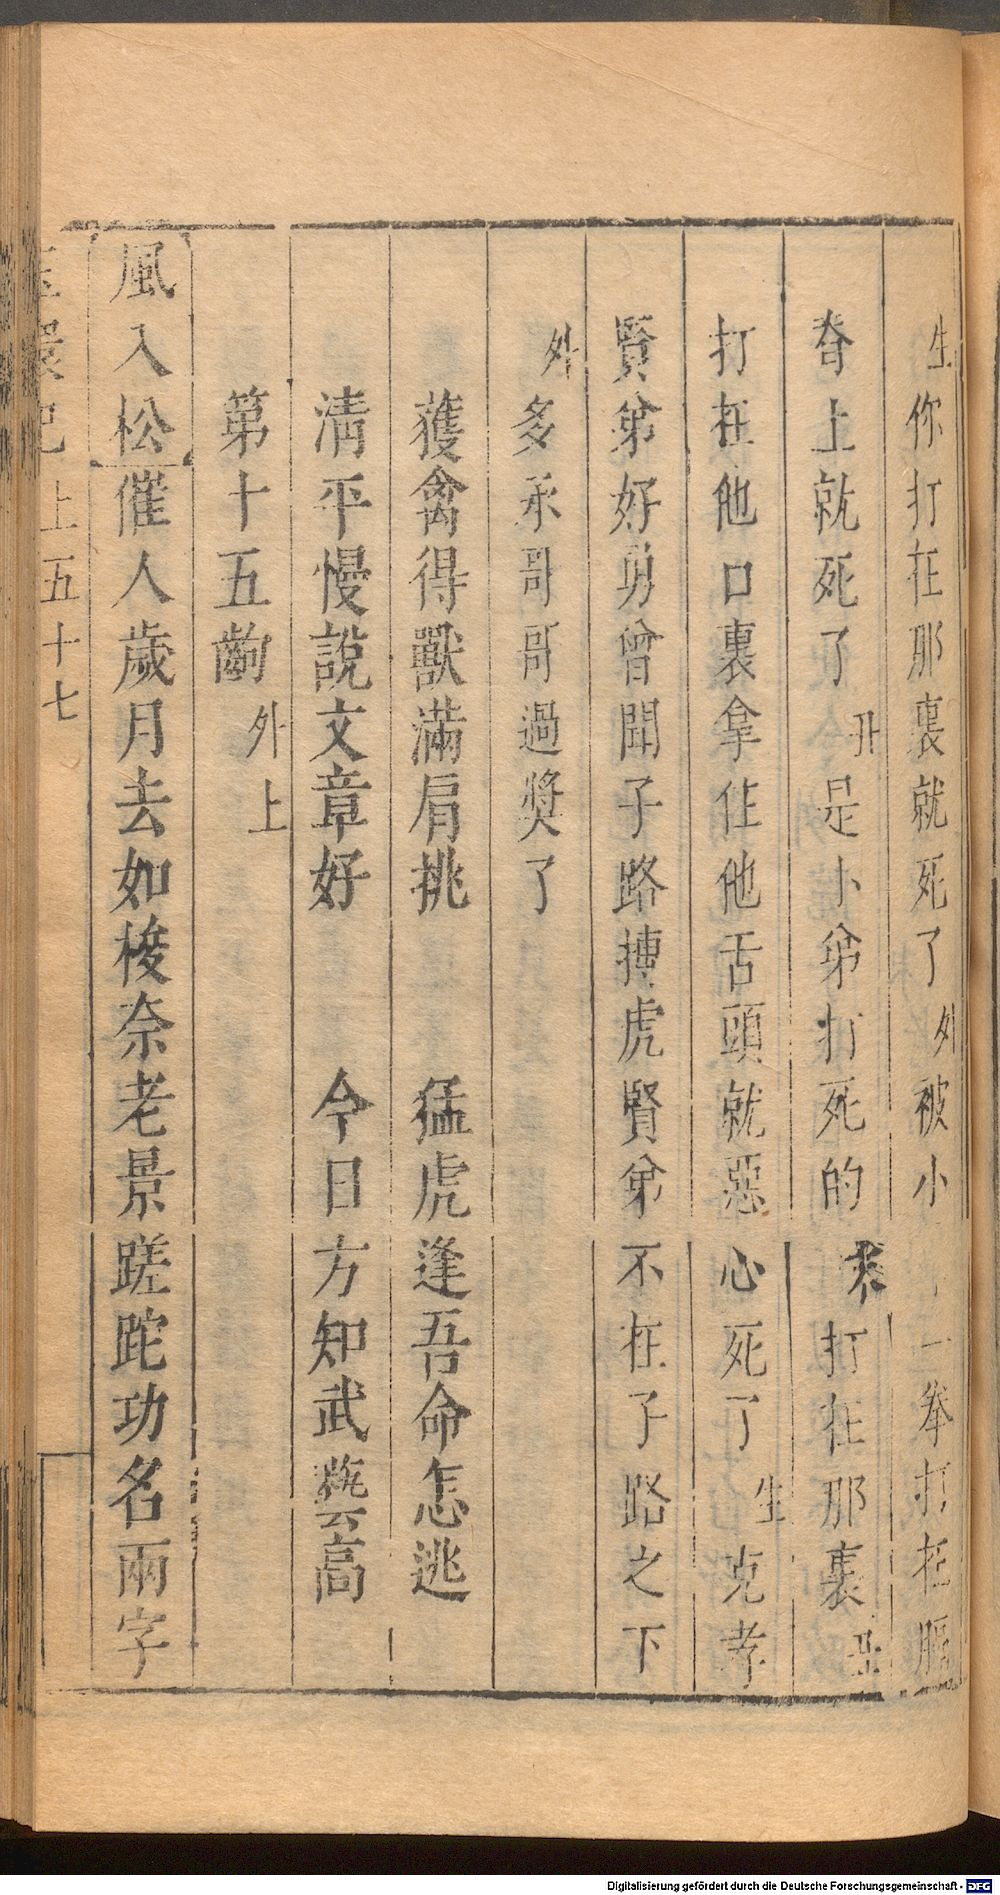 生你打在那裏就死了外被小一拳打在腦
脊上就死了丑是小弟打死的末打在那裏丑
打在他口裏拿住他舌頭就惡心死了生克孝
賢弟好勇曾聞子路搏虎賢弟不在子路之下
外多承哥哥過獎了
獲禽得獸滿肩挑　猛虎逢吾命怎逃
清平慢說文章好　今日方知武藝高
第十五齣外上
風入松催人歲月去如梭奈老景蹉跎功名兩字
玉環記上五十七
Digitalisierung gefördert durch die Deutsche Forschungsgemeinschaft - DFG